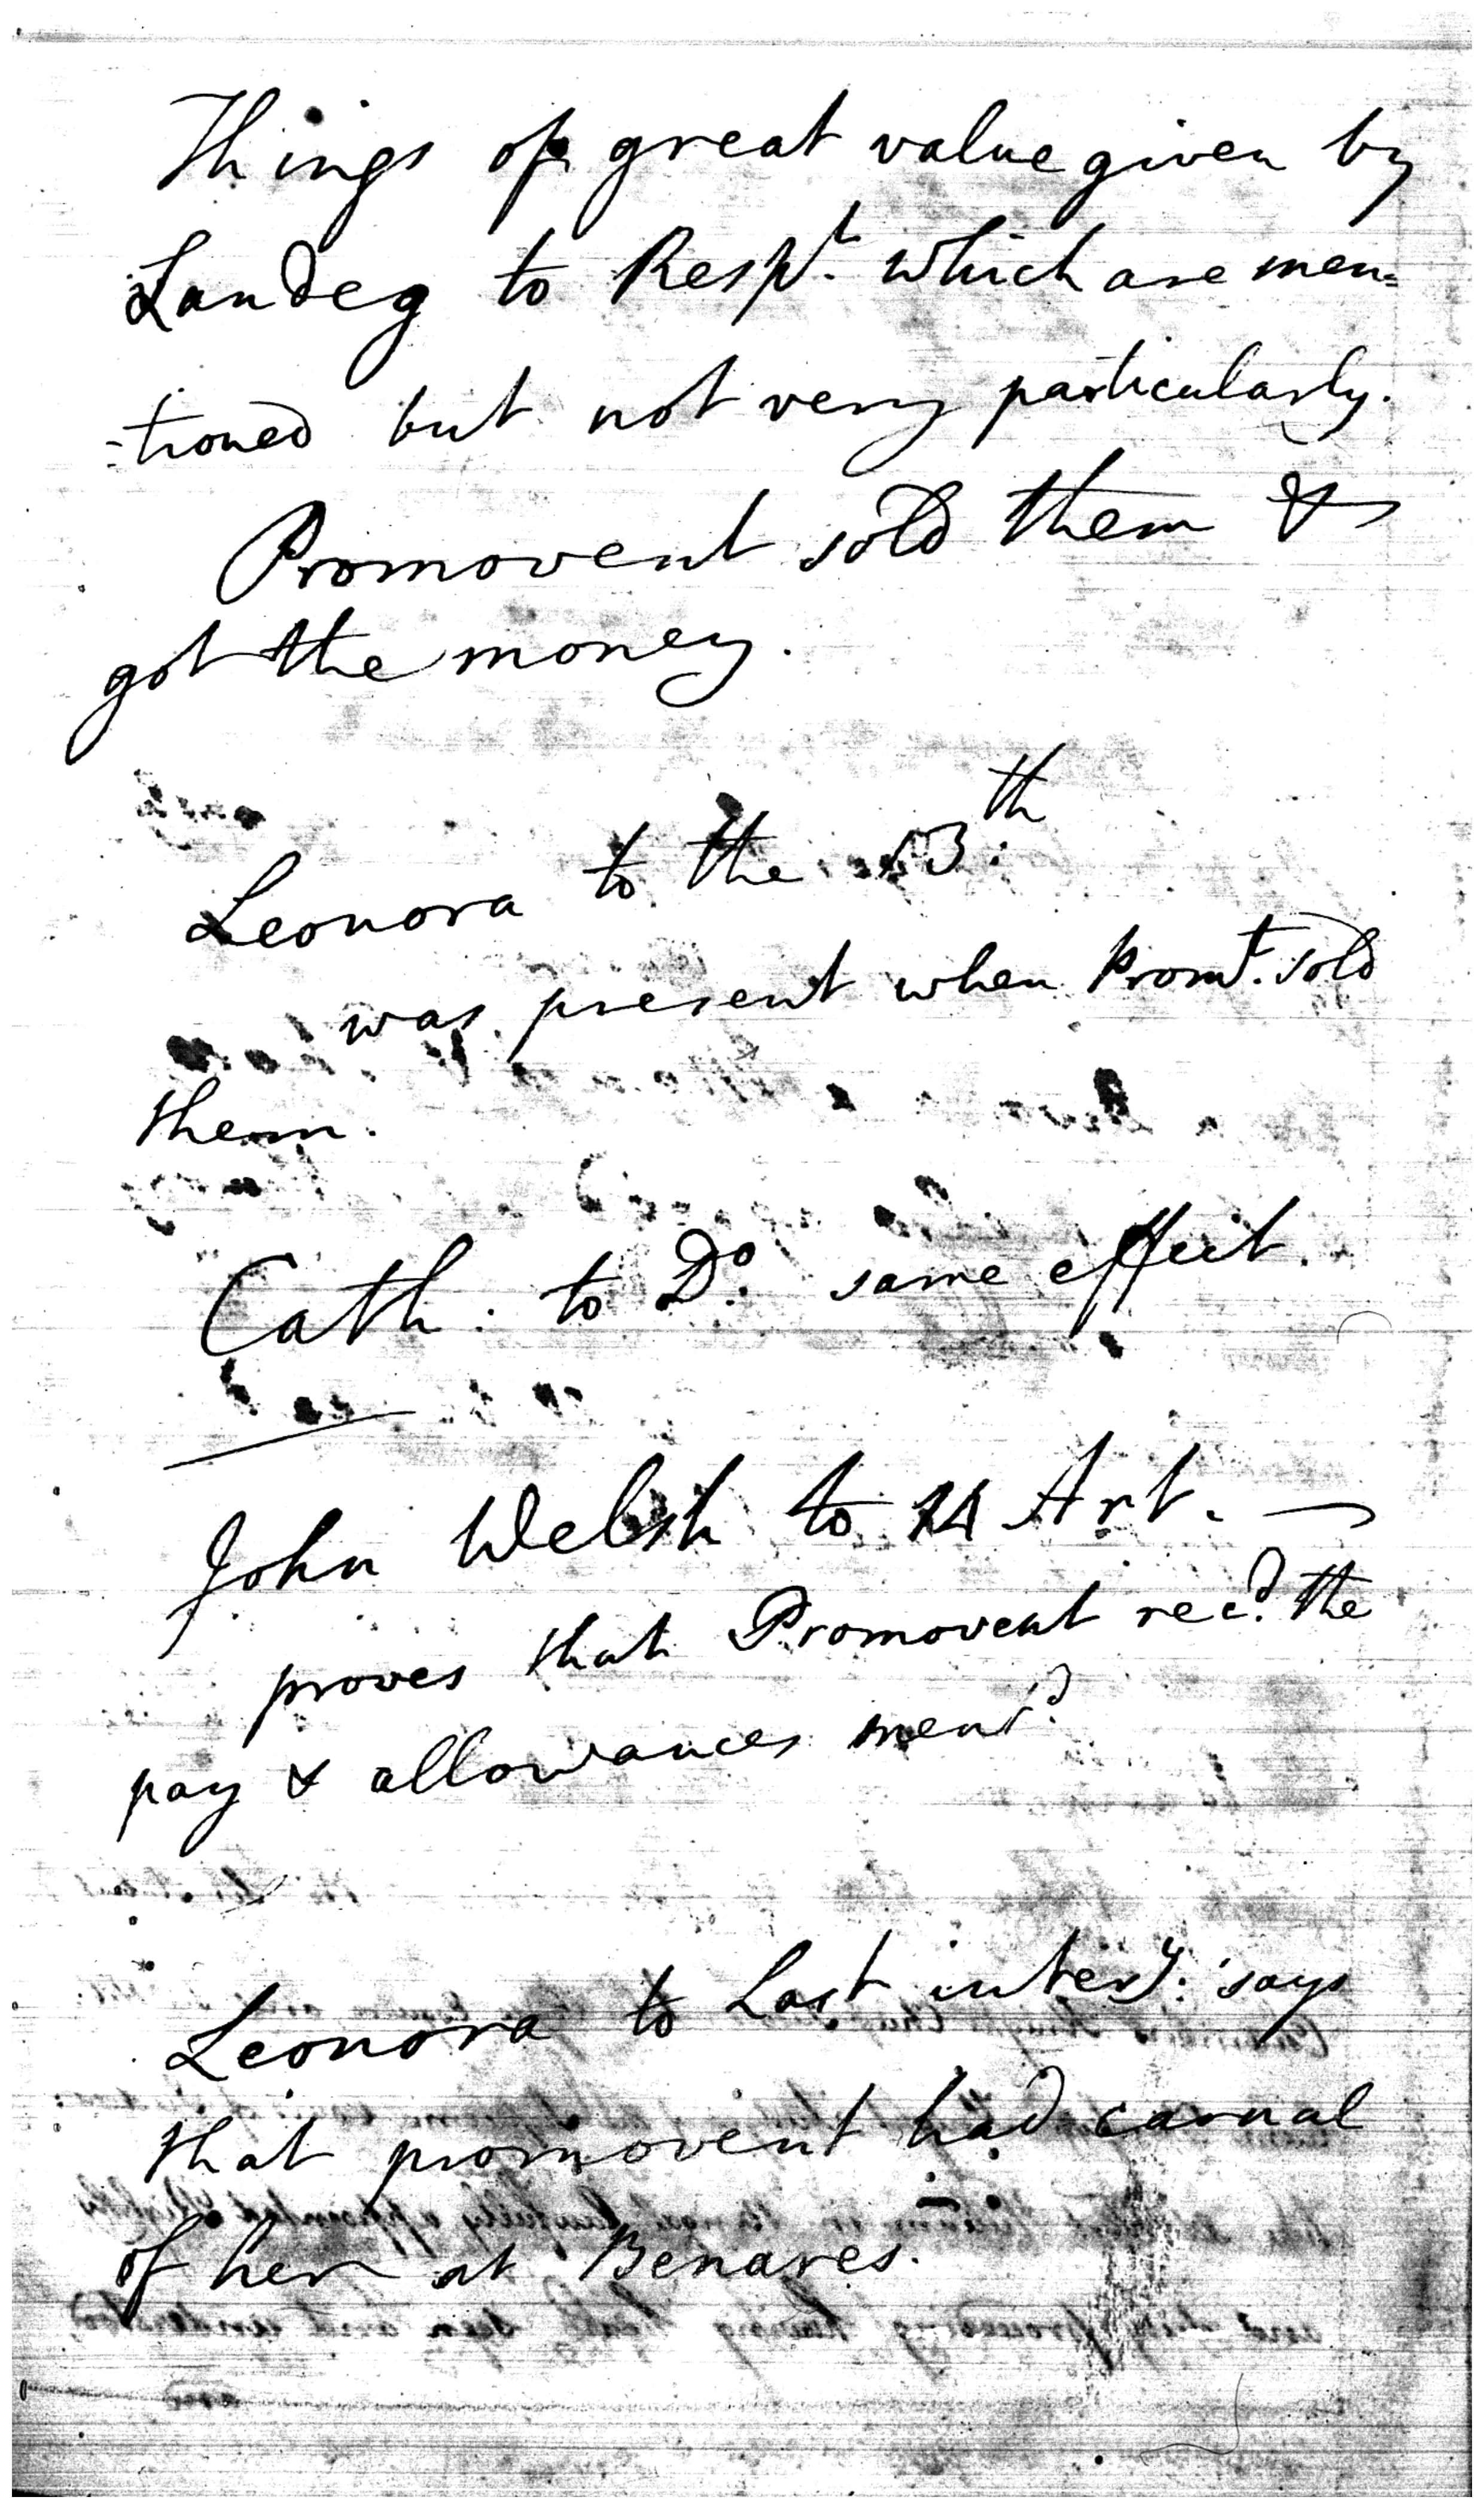 Things of great value given by
Landeg to Respt. which are men=
=tioned but not very particularly.
Promovent sold them &
got the money.
Leonora to the 13th.
was present when Promt. sold
them.
Cath: to Do. same effect.
John Welsh to 14 Art. —
proves that Promovent recd. the
pay & allowances mentd.
Leonora to Last intery. says
that promovent had carnal
of her at Benares.